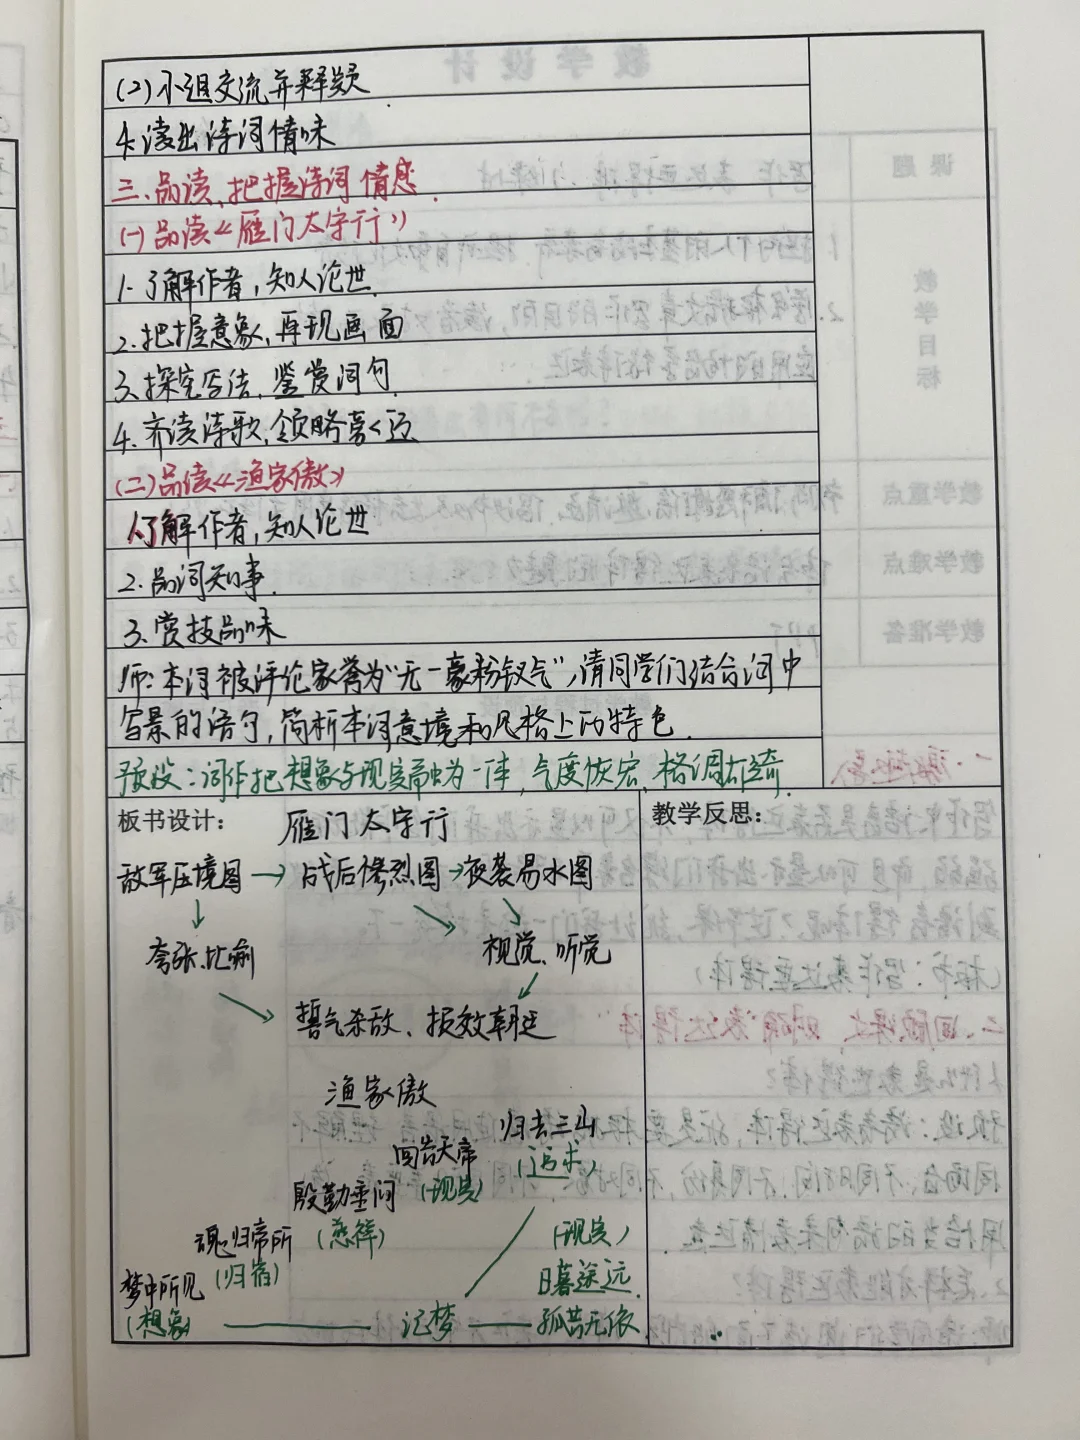 (2)小组交流并释疑
4.读出诗词情味
三.品读,把握诗词情感.
(一)品读《雁门太守行》
1.了解作者,知人论世.
2.把握意象,再现画面
3.探究写法,鉴赏词句.
4.齐读诗歌,领略豪迈
(二)品读《渔家傲》
1.了解作者,知人论世
2.品词知事.
3.赏技品味
师:本词被评论家誉为“无一毫粉钗气”,请同学们结合词中
写景的语句,简析本词意境和风格上的特色.
预设:词作把想象与现实融为一体,气度恢宏,格调雄奇.
板书设计:
雁门太守行
敌军压境图→战后惨烈图→夜袭易水图
夸张.比喻
视觉、听觉
誓气杀敌、报效朝廷
渔家傲
归去三山
(追求)
回告天帝
(现实)
殷勤垂问
(慈祥)
魂归帝所
(归宿)
梦中所见
(想象)
记梦
(现实)
日暮途远
孤苦无依
教学反思: